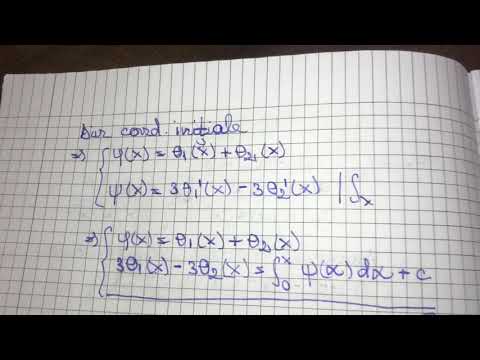 Dar cond. initiale
⇒ { φ(x) = θ₁(x) + θ₂(x)
ψ(x) = 3θ₁'(x) - 3θ₂'(x) | ∫ₓ
⇒ { φ(x) = θ₁(x) + θ₂(x)
3θ₁(x) - 3θ₂(x) = ∫₀ˣ ψ(α) dα + c